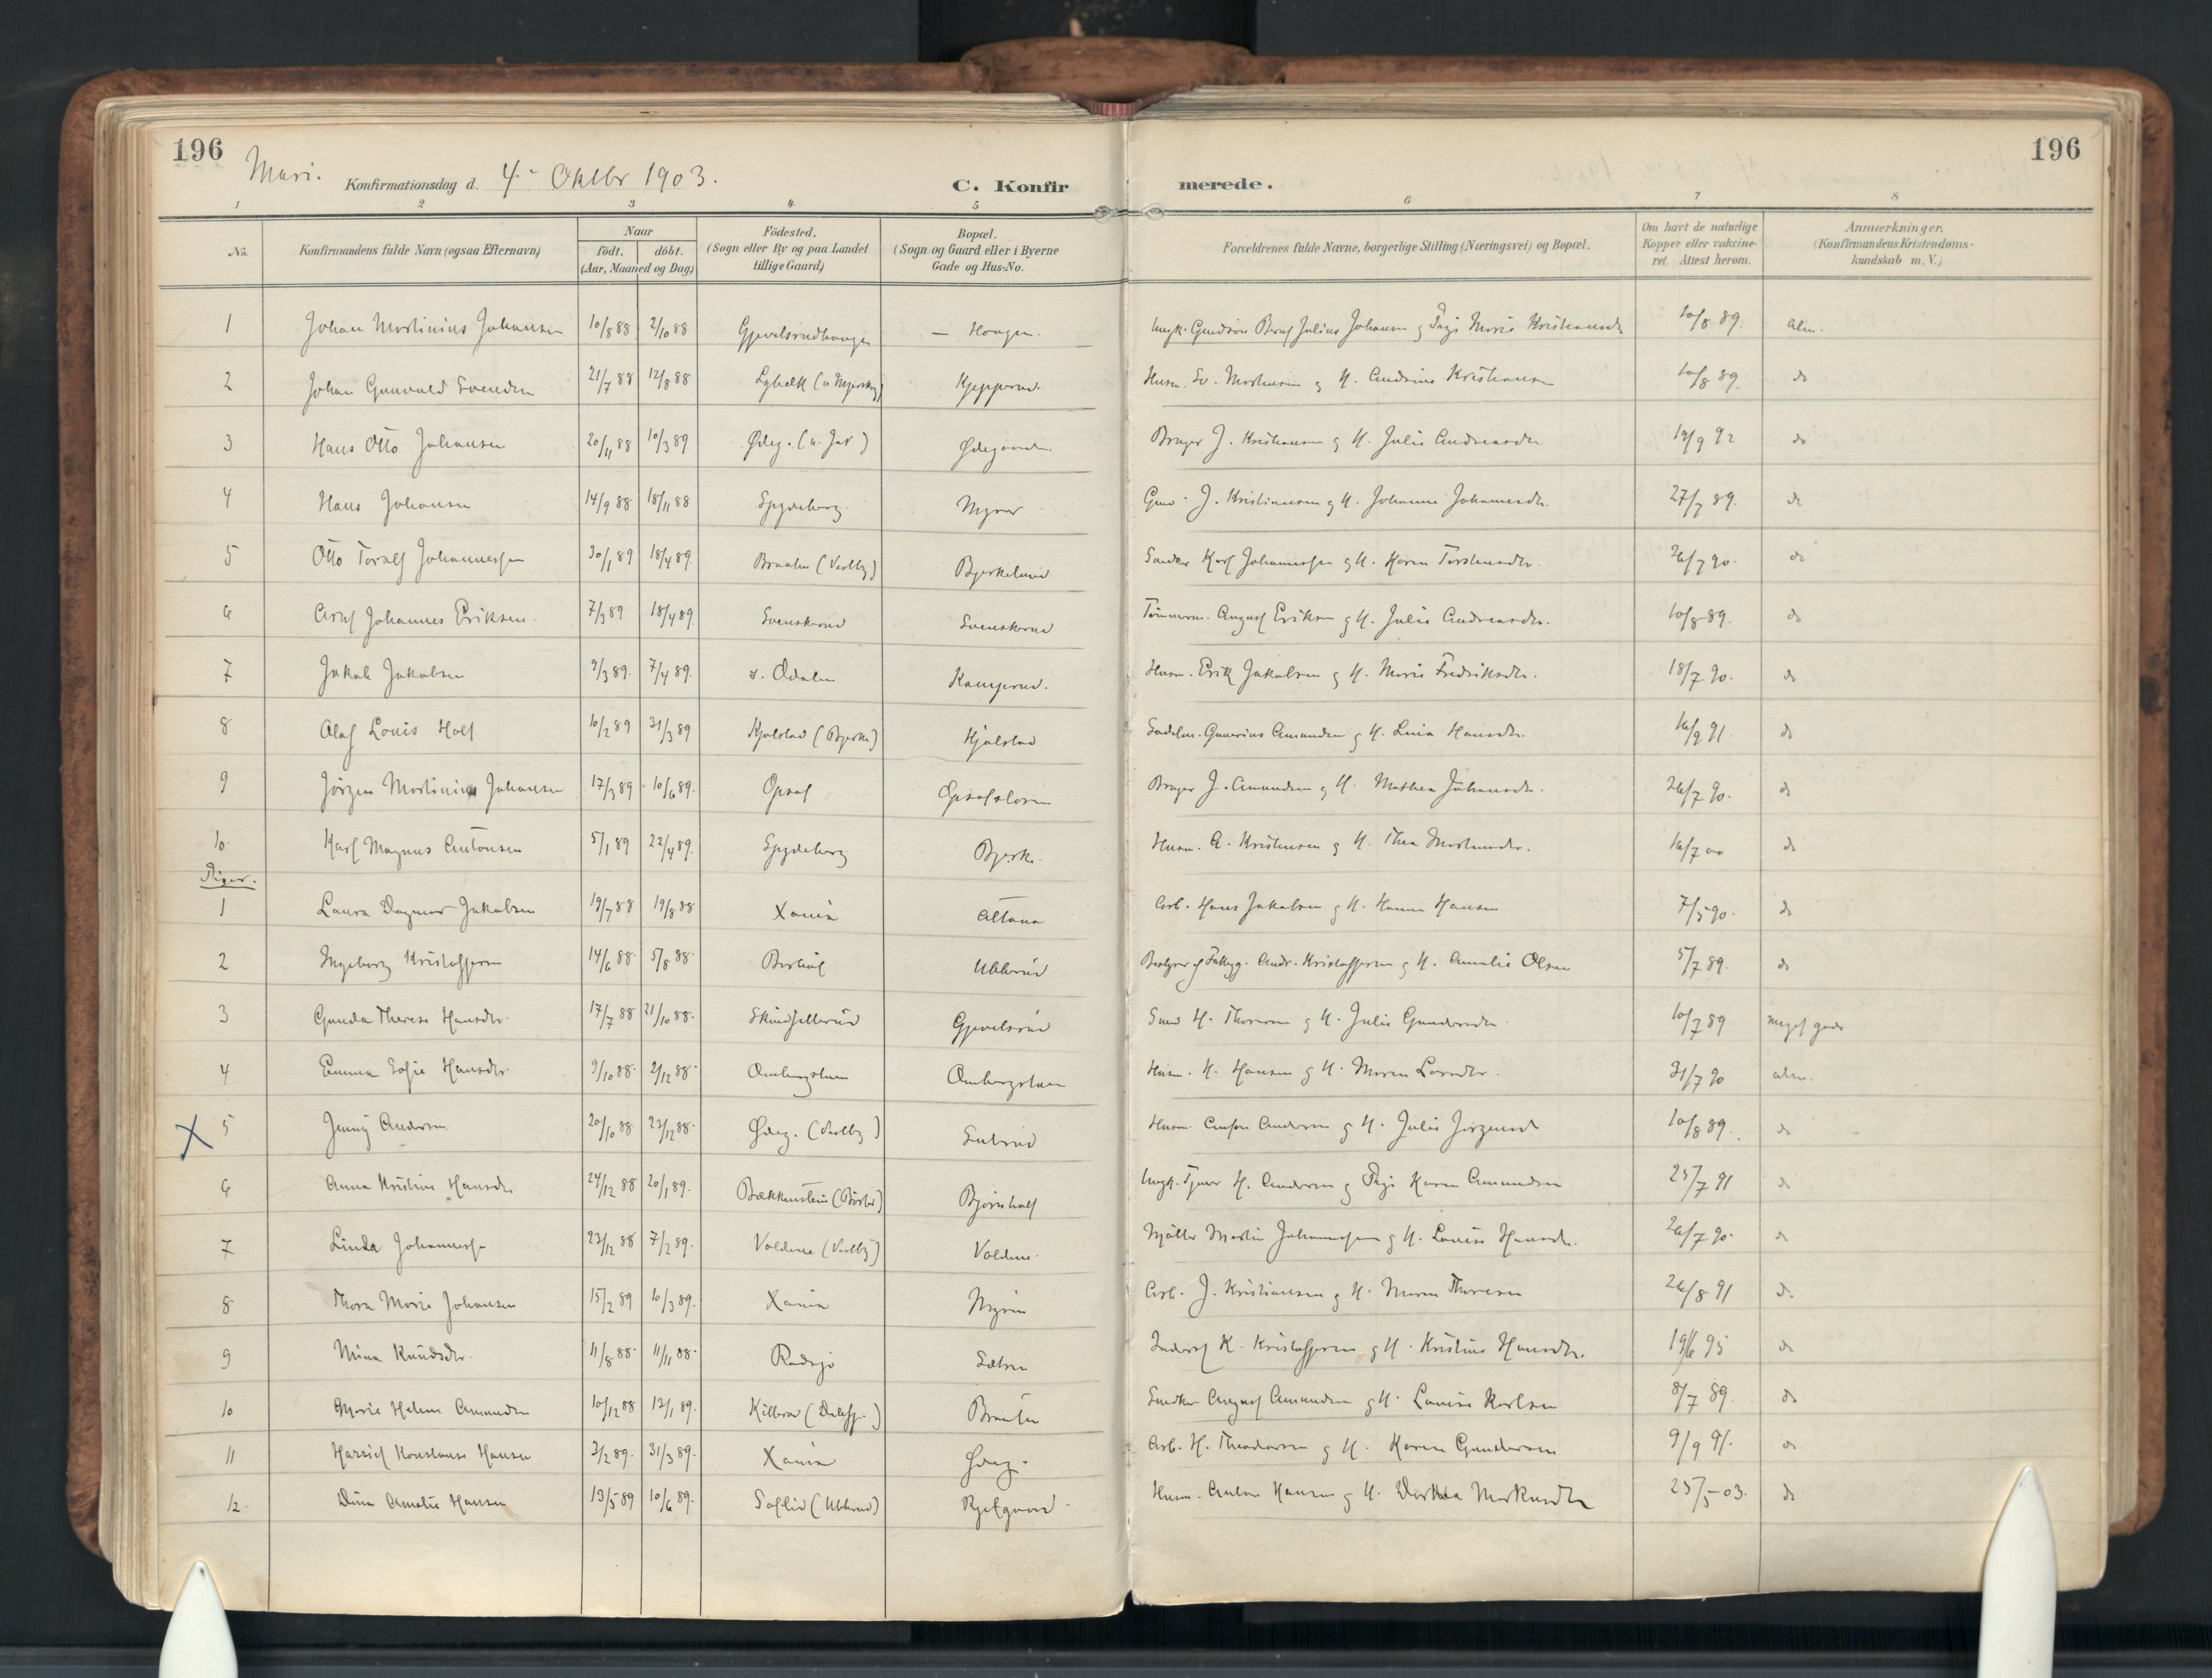 196
196
Mari. Konfirmationsdag d. 4de Oktbr 1903. C. Konfirmerede.
1 2 3 4 5 6 7 8
No. Konfirmandens fulde Navn (ogsaa Efternavn) Naar født. døbt. (Aar, Maaned og Dag) Fødested. (Sogn eller By og paa Landet tillige Gaard) Bopæl. (Sogn og Gaard eller i Byerne Gade og Hus-No. Forældrenes fulde Navne, borgerlige Stilling (Næringsvei) og Bopæl. Om havt de naturlige Kopper eller vakcineret Attest herom. Anmærkninger, (Konfirmandens Kristendomskundskab m. V.)
1 Johan Martinius Johansen 10/8 88 2/10 88 Gjevelsrudhaugen — Haugen. Julius Johansen og Pige Marie Kristiansdtr 10/8 89. alm.
2 Johan Gunvald Svendsen 21/7 88 12/8 88 Lybæk Kjepperud. Husm. Sv. Mortensen og H. Andrine Kristiansen 10/8 89. do
3 Hans Otto Johansen 20/11 88 10/3 89 Ødeg. Ødegaarden. Bruger J. Kristiansen og H. Julie Andreasdtr 19/9 92 do
4 Hans Johansen 14/9 88 18/11 88 Spydeberg Myrer J. Kristiansen og H. Johanne Johannesdtr. 27/7 89. do
5 Otto Toralf Johannessen 30/1 89 18/4 89. Braaten (Vestby) Bjerkelund Karl Johannessen og H. Karen Torstensdtr. 26/7 90. do
6 Johannes Eriksen. 7/3 89 18/4 89. Svenskerud Svenskerud Tømmerm. August Eriksen og H. Julie Andreasdtr. 10/8 89. do
7 Jakob Jakobsen 9/3 89. 7/4 89. s. Odalen Kamperud. Husm. Erik Jakobsen og H. Marie Fredriksdtr. 18/7 90. do
8 Olaf Louis Holt 10/2 89 31/3 89 Kjølstad (Bjerke) Kjølstad Sadelm. Gunerius Amundsen og H. Lina Hansdtr. 16/9 91. do
9 Jørgen Martinius Johansen 17/3 89 10/6 89. Opsal Opsalsloven Bruger J. Amundsen og H. Mathea Johansdtr. 26/7 90. do
10. Karl Magnus Antonsen 5/1 89 22/4 89. Spydeberg Bjerke. Husm. A. Kristensen og H. Thea Mortensdtr. 16/7 00 do
Piger.
1 Laura Dagmar Jakobsen 19/7 88 19/8 88 Xania Altona Arb. Hans Jakobsen og H. Hanna Hansen 7/5 90. do
2 Ingeborg Kristoffersen 14/6 88. 5/8 88. Ubberud Andr. Kristoffersen og H. Amelie Olsen 5/7 89. do
3 Gunda Therese Hansdtr. 17/7 88 21/10 88. Skindfellerud Gjevelsrud Smed H. Thoresen og H. Julie Gundersdtr. 10/7 89 meget godt
4 Emma Sofie Hansdtr. 9/10 88. 2/12 88. Husm. H. Hansen og H. Maren Larsdtr. 31/7 90 alm.
X 5 Jenny Andersen 20/10 88 23/12 88. Ødeg. (Vestby) Husm. Anton Andersen og H. Julie Jørgensdtr 10/8 89. do
6 Anna Kristine Hansdtr 24/12 88 20/1 89. Bækkensten Bjørnholt Ungk. Tjener H. Andersen og Pige Karen Amundsen 25/7 91 do
7 Linda Johannessen 23/12 88 7/2 89. Voldene (Vestby) Voldene. Møller Martin Johannessen og H. Lovise Hansdtr. 26/7 90. do
8 Thora Marie Johansen 15/2 89 10/3 89. Xania Myren Arb. J. Kristiansen og H. Maren Thoresen 26/8 91 do
9 Mina Knudsdtr. 11/8 88. 11/11 88. Rødsjø Sætre Inderst K. Kristoffersen og H. Kristine Hansdtr. 19/6 95 do
10 Marie Helene Amundsen 10/12 88 13/1 89. Braaten August Amundsen og H. Lovise Karlsen 8/7 89. do
11 Konstanse Hansen 3/2 89. 31/3 89. Xania Ødeg. Arb. H. Theodorsen og H. Karen Gundersen 9/9 91. do
12. Dina Amalie Hansen 13/5 89 10/6 89. Soflid (Ubberud) Husm. Anton Hansen og H. Dorthea Markusdtr 25/5 03. do